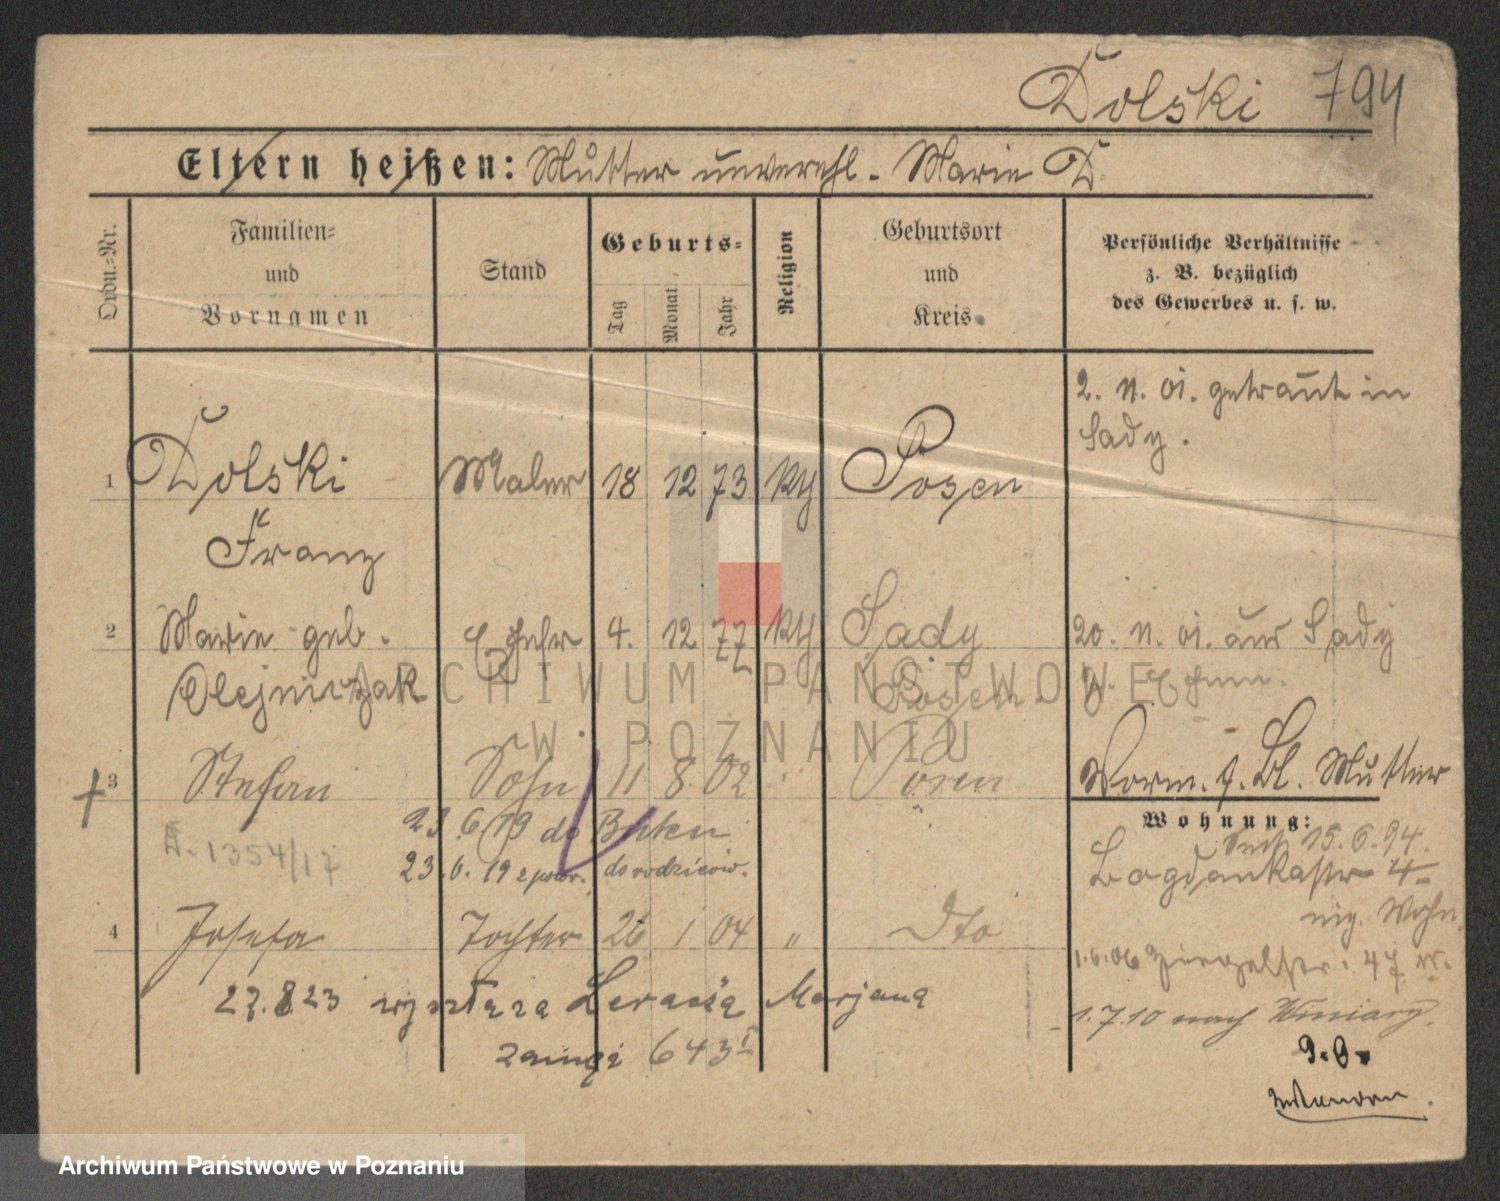 Dolski 794
Eltern heißen: Mutter unverehl. Marie D.
Ordn.-Nr.
Familien-
und
Vornamen
Stand
Geburts-
Tag
Monat
Jahr
Religion
Geburtsort
und
Kreis
Persönliche Verhältnisse
z. B. bezüglich
des Gewerbes u. s. w.
2. 11. 01. getraut in
Sady.
1 Dolski Maler 18 12 73 kth Posen
Franz
2 Marie geb. Ehefr 4. 12 77 kth Sady 20. 11. 01. aus Sady
Olejniczak Posen z. Ehem.
3 Stefan Sohn 11 8 02 " Posen Vorm. f. Bl. Mutter
23.6.19 do Buten
Wohnung:
A. 1354/17
23.6.19 z powr. do rodziców.
15.6.94.
Bogdankastr 4
Wohn.
4 Josefa Tochter 26 1 04 " dto
1.6.06 47
27.8.23 wyszła za Marjana
1.7.10 nach Winiary.
643 I
ARCHIWUM PAŃSTWOWE
W POZNANIU
Archiwum Państwowe w Poznaniu